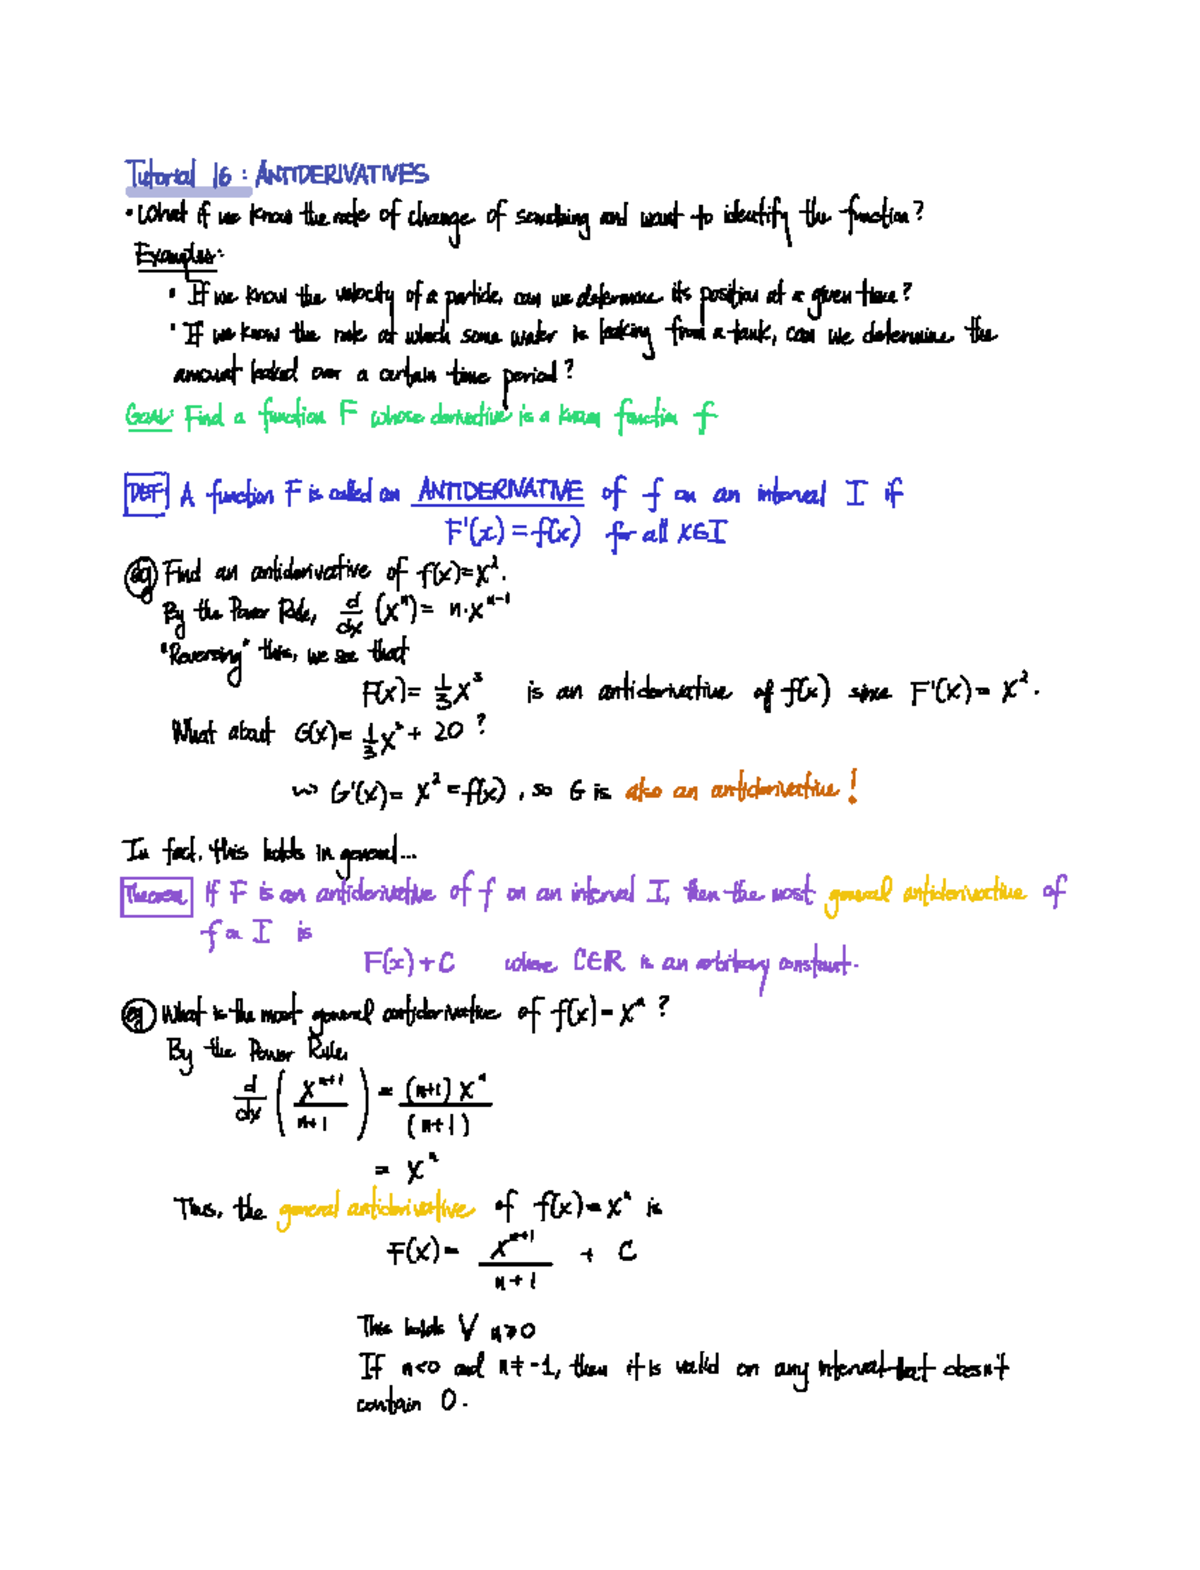 Tutorial 16 : ANTIDERIVATIVES
• What if we know the rate of change of something and want to identify the function?
Examples:
• If we know the velocity of a particle, can we determine its position at a given time?
• If we know the rate at which some water is leaking from a tank, can we determine the
amount leaked over a certain time period?
GOAL: Find a function F whose derivative is a known function f
DEF: A function F is called an ANTIDERIVATIVE of f on an interval I if
F'(x) = f(x) for all x∈I
eg Find an antiderivative of f(x)=x².
By the Power Rule, d/dx (xⁿ) = n·xⁿ⁻¹
"Reversing" this, we see that
F(x) = 1/3 x³ is an antiderivative of f(x) since F'(x) = x².
What about G(x) = 1/3 x³ + 20 ?
↝ G'(x) = x² = f(x), so G is also an antiderivative!
In fact, this holds in general...
Theorem If F is an antiderivative of f on an interval I, then the most general antiderivative of
f on I is
F(x) + C where C∈ℝ is an arbitrary constant.
eg What is the most general antiderivative of f(x) = xⁿ ?
By the Power Rule,
d/dx ( xⁿ⁺¹/n+1 ) = (n+1) xⁿ/(n+1)
= xⁿ
Thus, the general antiderivative of f(x) = xⁿ is
F(x) = xⁿ⁺¹/n+1 + C
This holds ∀ n≥0
If n<0 and n≠-1, then it is valid on any interval that doesn't
contain 0.